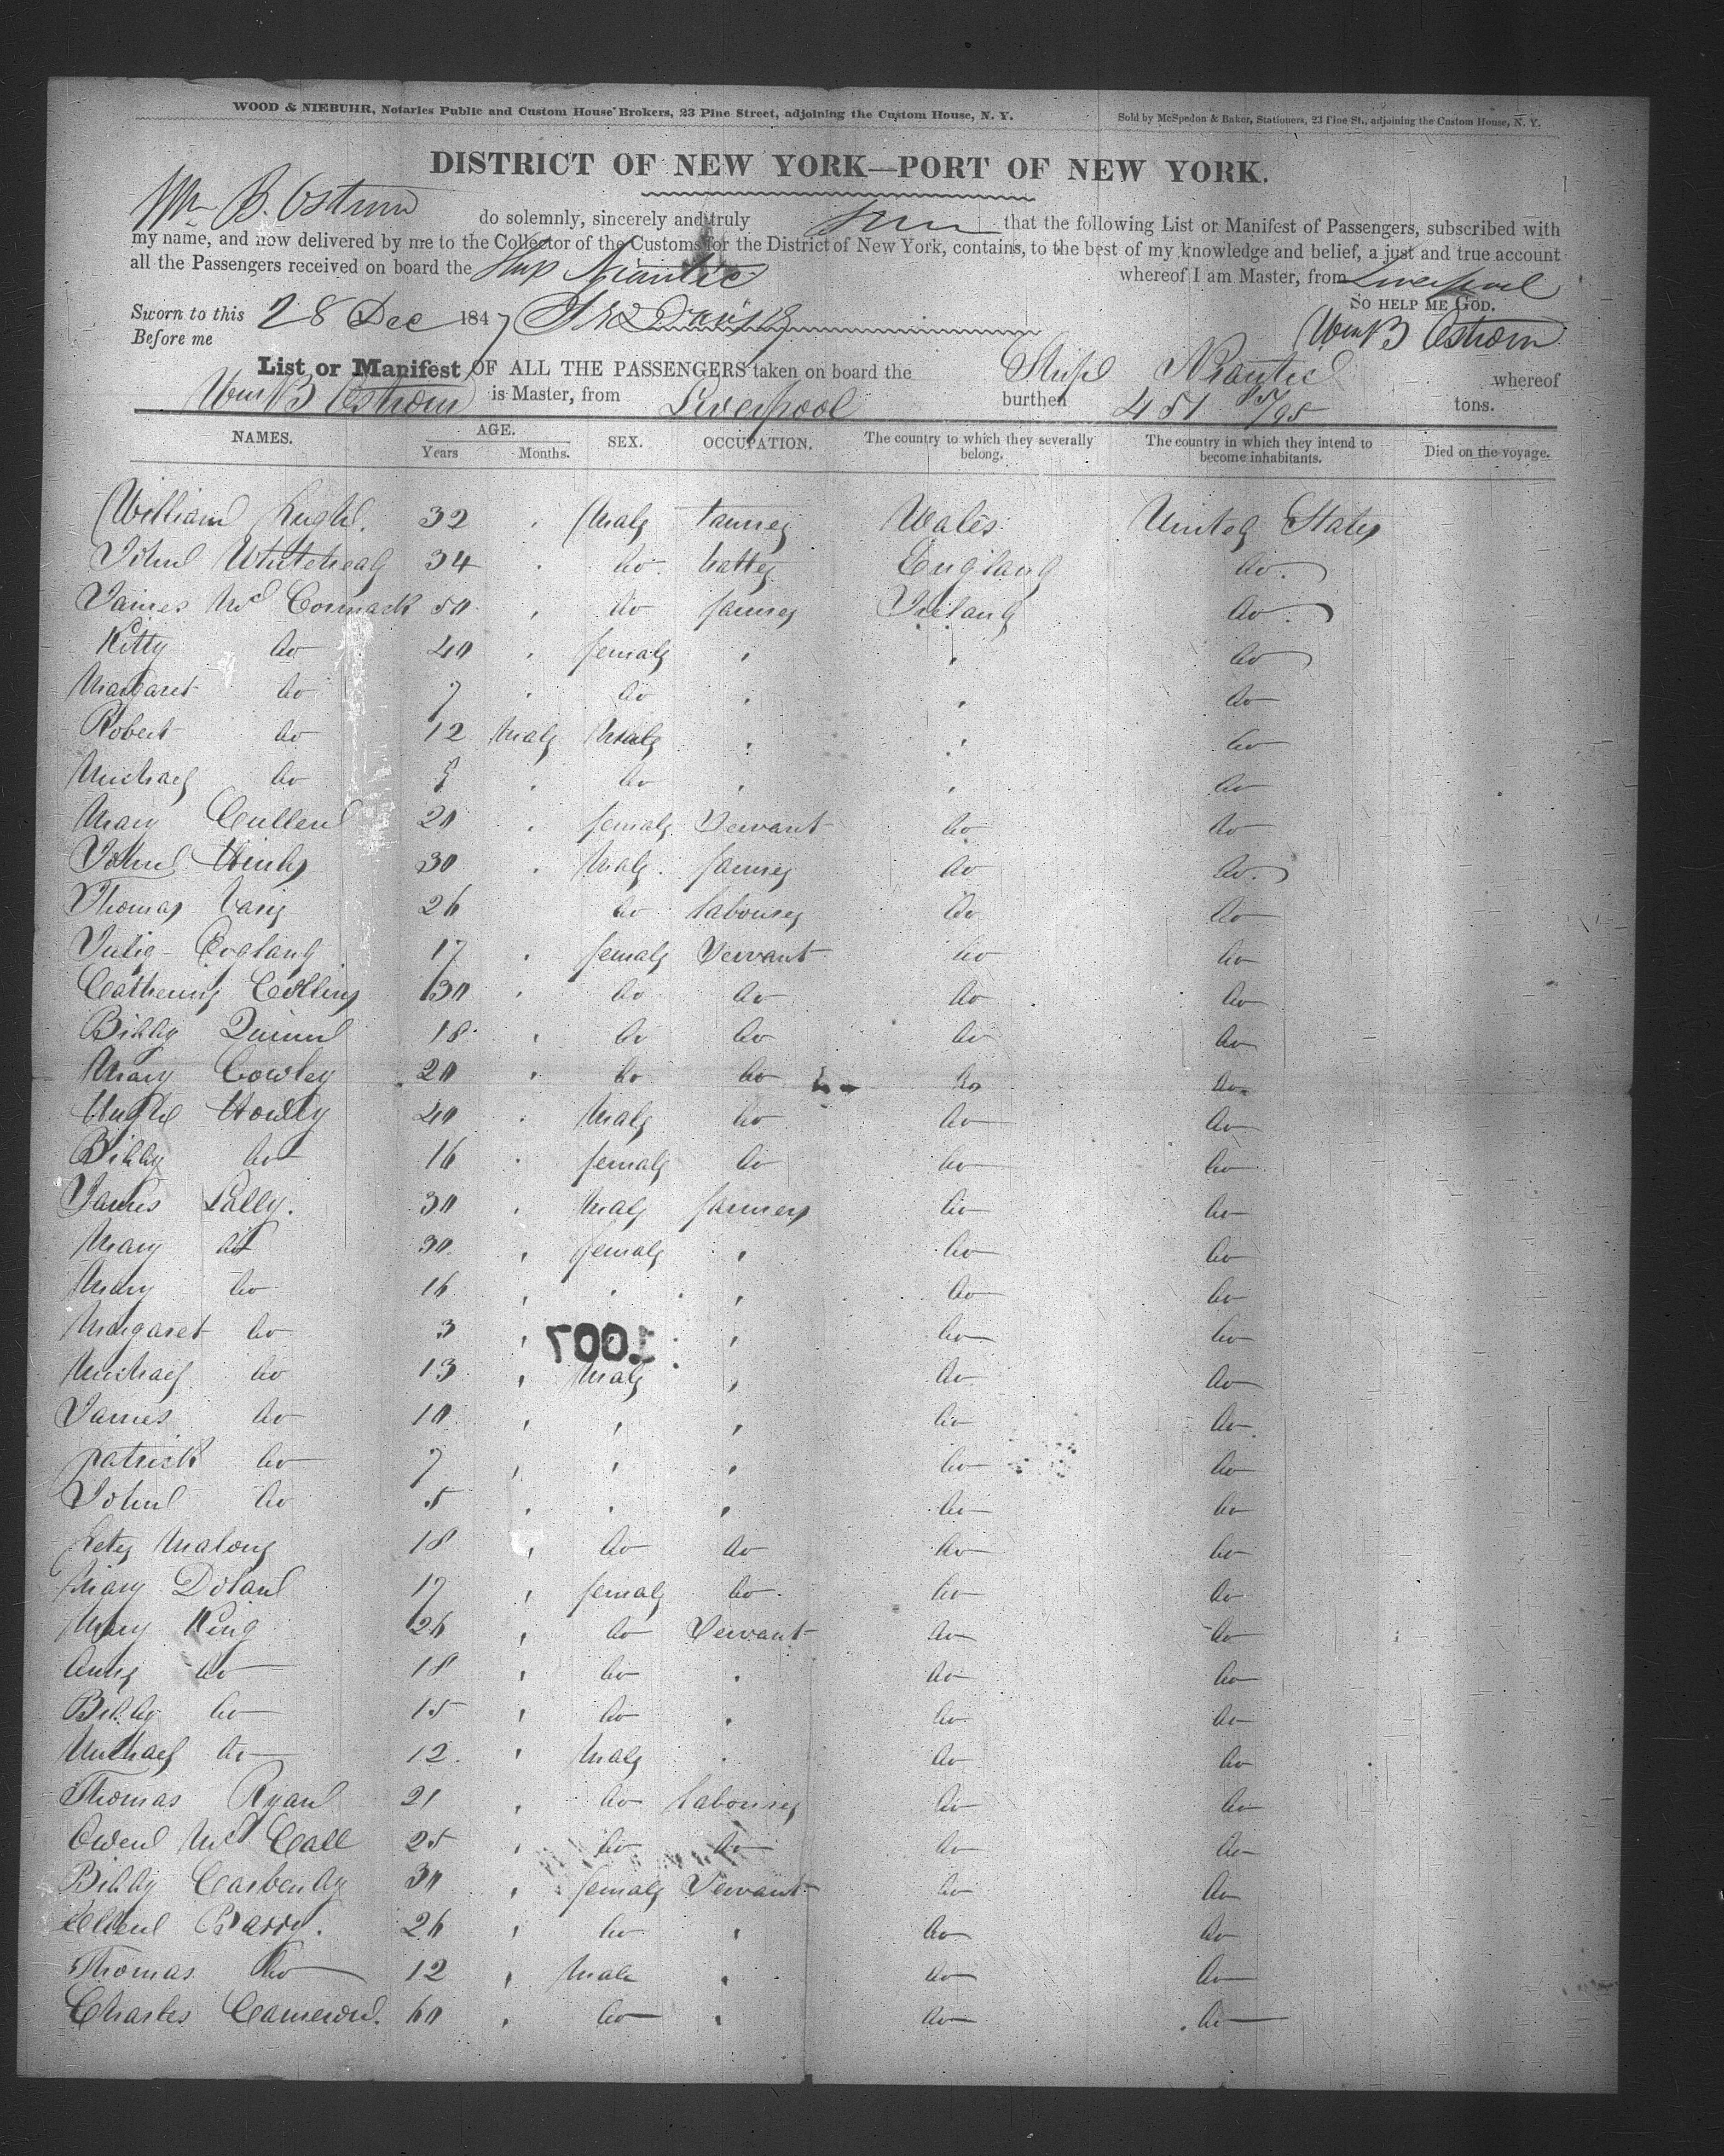 WOOD & NIEBUHR, Notaries Public and Custom House Brokers, 23 Pine Street, adjoining the Custom House, N. Y. Sold by McSpedon & Baker, Stationers, 23 Pine St., adjoining the Custom House, N. Y.
DISTRICT OF NEW YORK—PORT OF NEW YORK.
Wm B. Ostrom do solemnly, sincerely and truly that the following List or Manifest of Passengers, subscribed with
my name, and now delivered by me to the Collector of the Customs for the District of New York, contains, to the best of my knowledge and belief, a just and true account
all the Passengers received on board the Ship Niantic whereof I am Master, from Liverpool
SO HELP ME GOD.
Sworn to this 28 Dec 1847
Before me
Wm B Ostrom
List or Manifest OF ALL THE PASSENGERS taken on board the Ship Niantic whereof
Wm B Ostrom is Master, from Liverpool burthen 451 85/95 tons.
NAMES. AGE. Years Months. SEX. OCCUPATION. The country to which they severally belong. The country in which they intend to become inhabitants. Died on the voyage.
William Hughs. 32 Male Wales United States
John Whitehead 34 do hatter England do
James Mc Cormack 50 do farmer Ireland do
Kitty do 40 female do
Margaret do 7 do do
Robert do 12 Male Male do
Michael do 9 do do
Mary Cullen 20 female Servant do do
John Hinds 30 Male farmer do do
Thomas 26 do labourer do do
Julia 17 female Servant do do
Catherine Collins 30 do do do do
Biddy Quinn 18 do do do do
Mary Cowley 20 do do do do
Hugh Howley 40 Male do do do
Biddy do 16 female do do do
James Lally. 30 Male farmer do do
Mary do 30 female do do
Mary do 16 do do
Margaret do 3 do do
1007
Michael do 13 Male do do
James do 10 do do
patrick do 7 do do
John do 5 do do
Malone 18 do do do do
Mary Dolan 17 female do do do
Mary King 26 do Servant do do
Anne do 18 do do do
Biddy do 15 do do do
Michael do 12 Male do do
Thomas Ryan 21 do labourer do do
Owen Mc Call 25 do do do do
Biddy 30 female Servant do do
Ellen Barry. 26 do do do
Thomas do 12 Male do do
Charles Cameron. 60 do do do